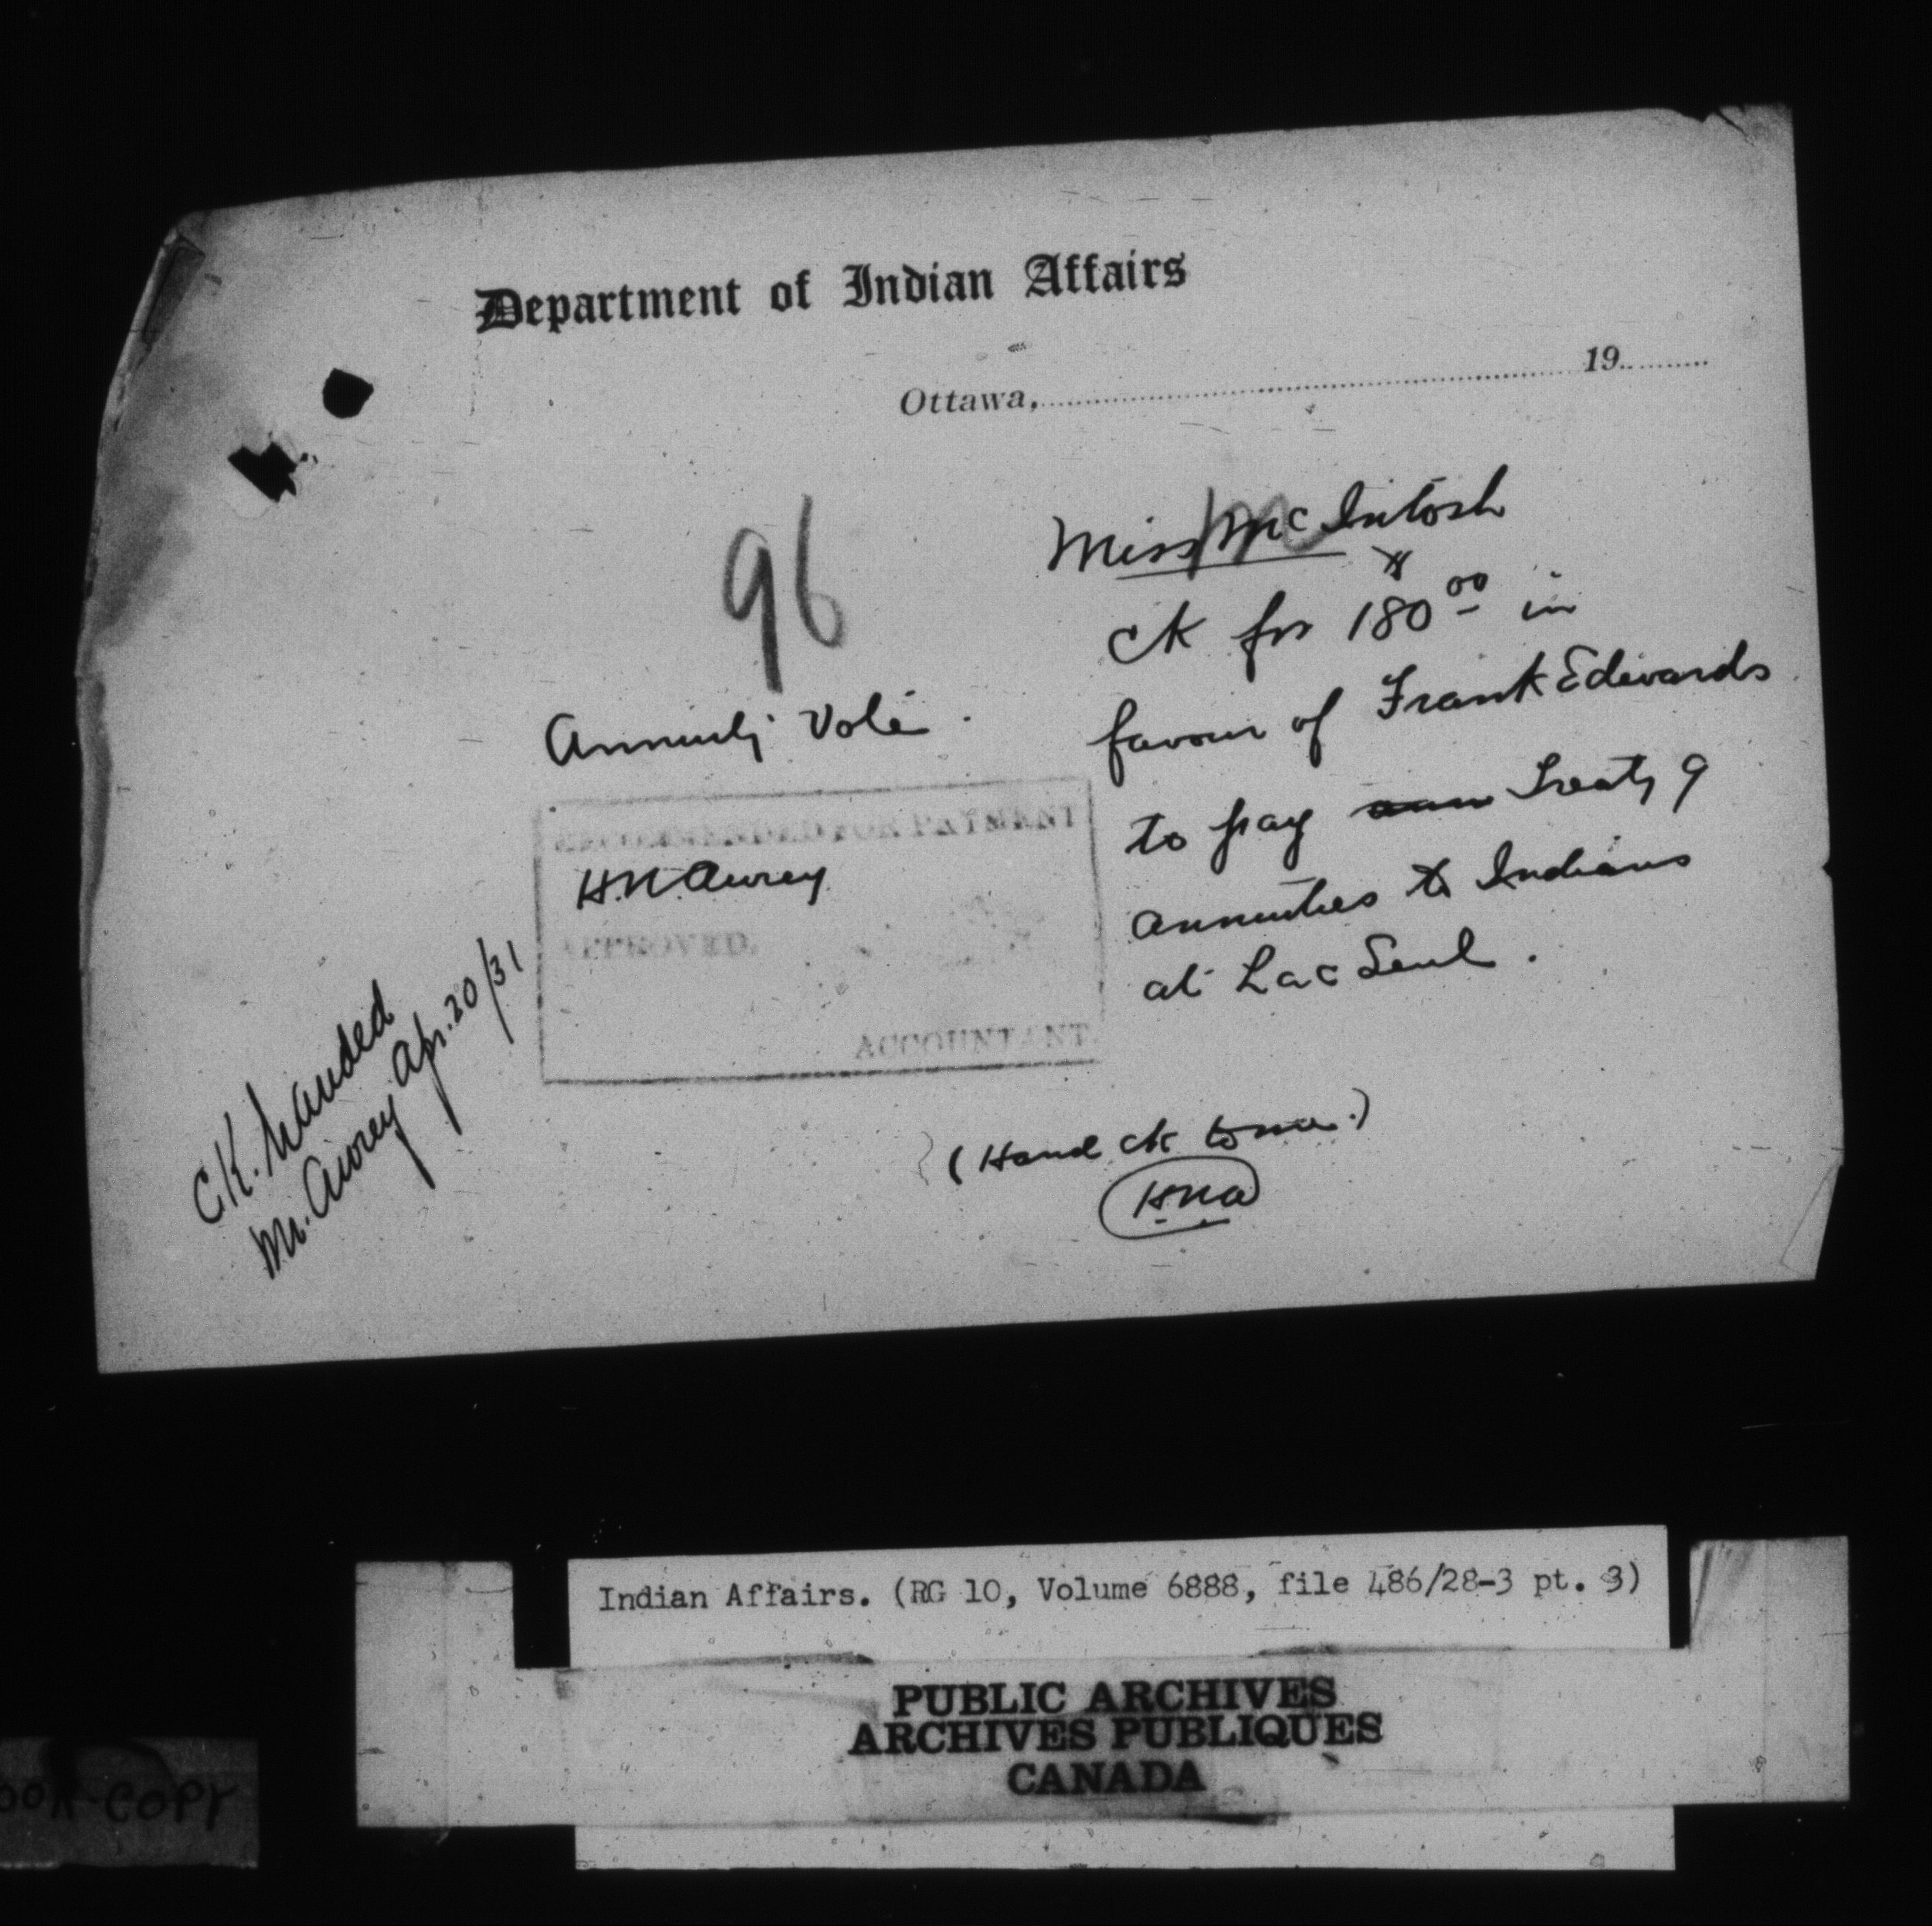 Department of Indian Affairs
Ottawa, 19
96
Miss McIntosh
ck for 180 00 in
favour of Frank Edwards
to pay Treaty 9
annuities to Indians
at Lac Seul.
Annuity Vote.
RECOMMENDED FOR PAYMENT
H.N. Awrey
APPROVED.
ACCOUNTANT.
(Hand ck to me.)
HNA
CK. handed
Mr. Awrey Apr. 20/31
Indian Affairs. (RG 10, Volume 6888, file 486/28-3 pt. 3)
PUBLIC ARCHIVES
ARCHIVES PUBLIQUES
CANADA
COPY